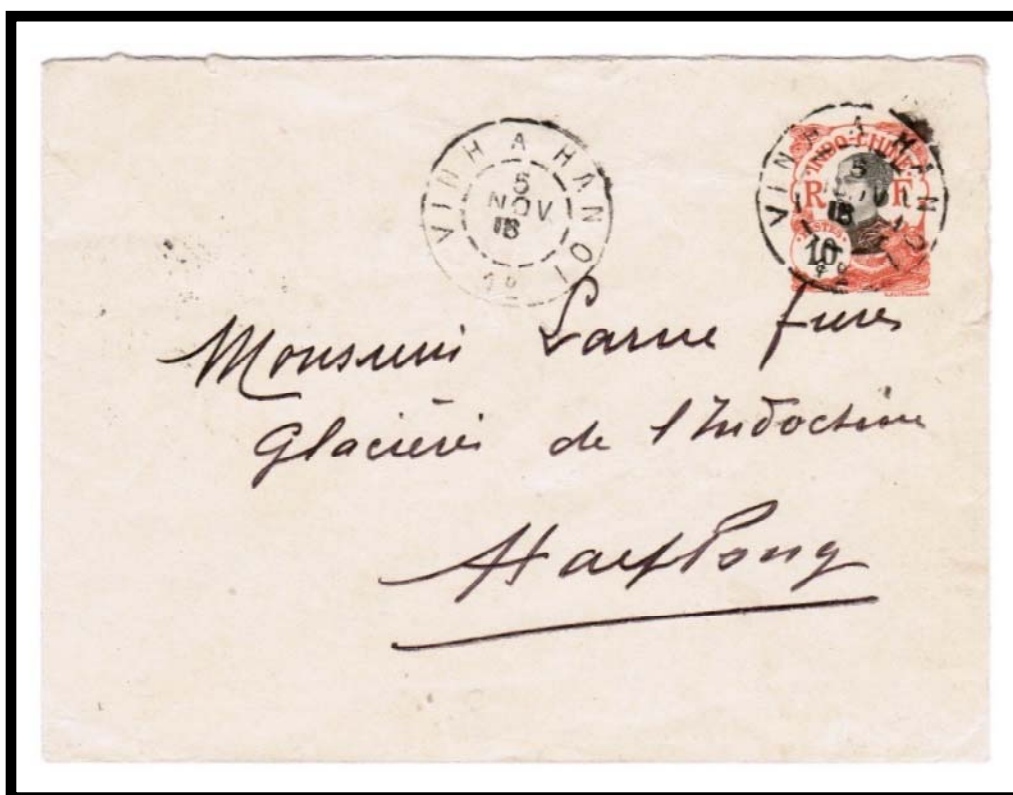 VINH A HANOI
5
NOV
18
1º
VINH A HANOI
5
NOV
18
1º
INDO-CHINE
R F
POSTES
10
Monsieur Larue frères
Glacières de l'Indochine
Haiphong